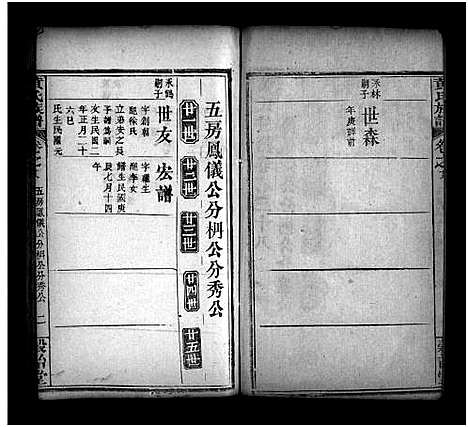 永林
嗣子
世森
年庚詳前
五房鳳儀公分枬公分秀公
廿一世
廿二世
廿三世
廿四世
廿五世
永錫
嗣子
世友
字創朝
配徐氏
立弟安之長
子譜爲嗣
女生民國二
年正月二十
六巳
氏生民國元
宏譜
字耀生
配李女
譜生民國庚
辰七月十四
五房鳳儀公分枬公分秀公
一